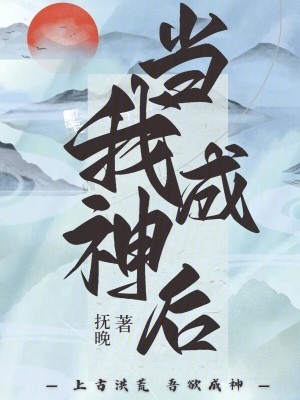 当我成神后
抚晚 著
— 上古洪荒 吾欲成神 —